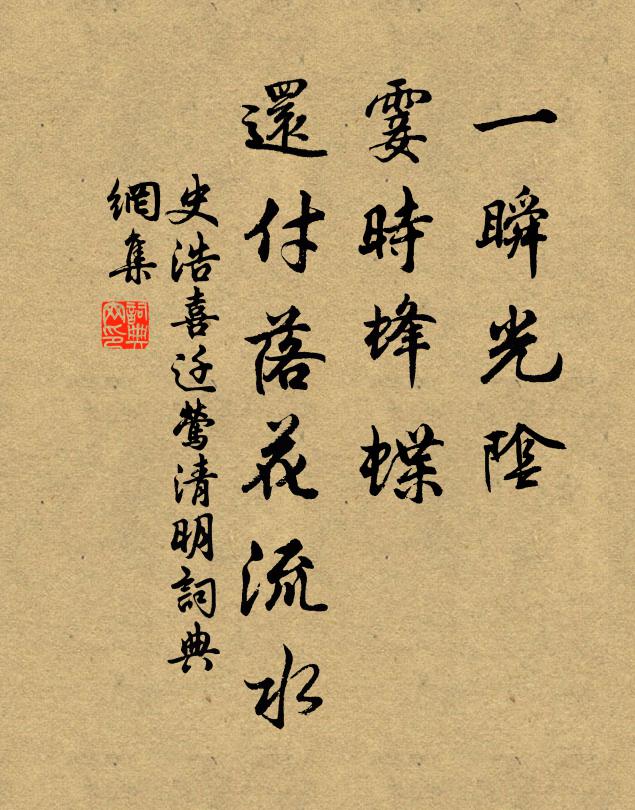 一瞬光陰
霎時蜂蝶
還付落花流水
史浩喜迁鶯清明詞典
網集
詞典
网印